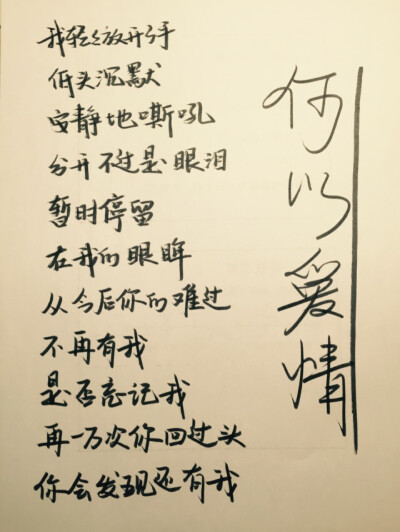 何以爱情
我轻轻放开手
低头沉默
安静地嘶吼
分开不过是眼泪
暂时停留
在我的眼眸
从今后你的难过
不再有我
是否忘记我
再一万次你回过头
你会发现还有我